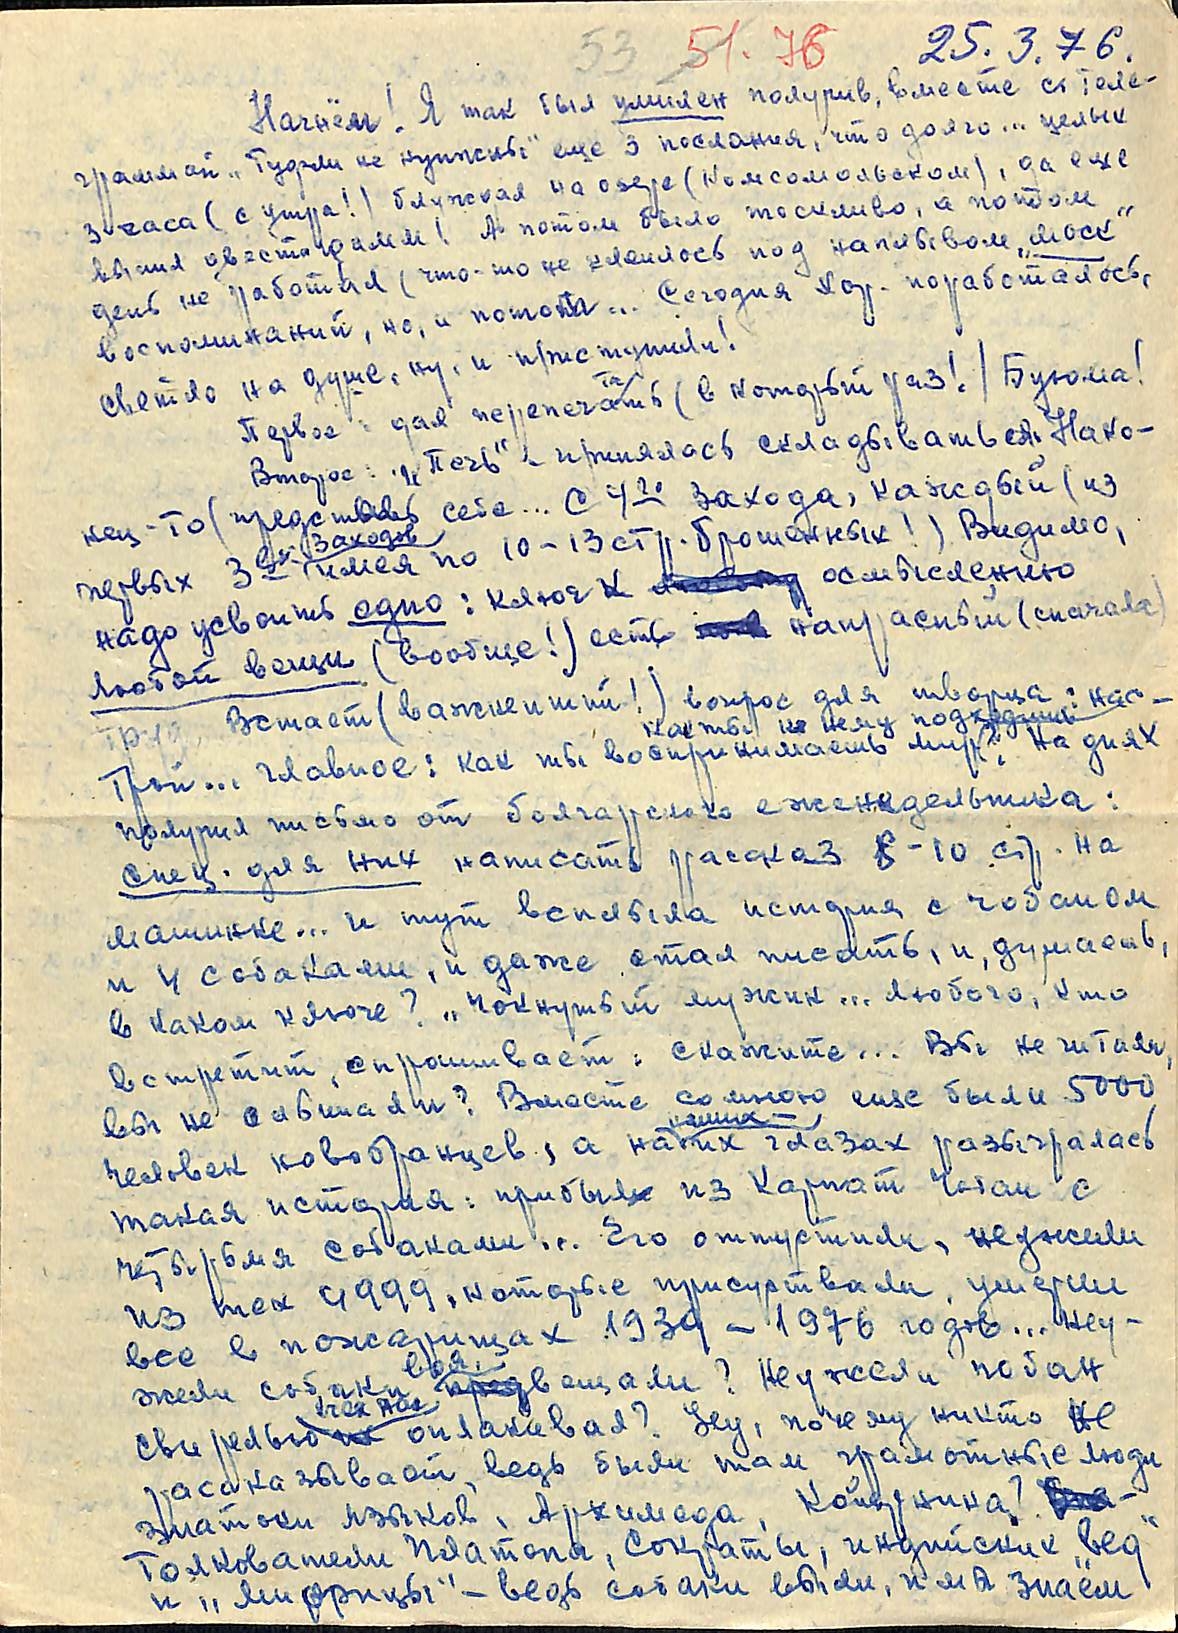 53 51.76 25.3.76.
Начнём! Я так был умилен получив, вместе с теле-
граммой „Гудзли не нужны" еще 3 послания, что долго... целых
3 часа (с утра!) блуждал на озере (Комсомольском), да еще
выпил двести грамм! А потом было тоскливо, а потом
день не работал (что-то не клеилось под наплывом „моск"
воспоминаний, но, и потом... Сегодня хор. поработалось,
светло на душе, ну, и приступили!
Первое: дал перепечатать (в который раз!) Бутома!
Второе: „Печь" – принялась складываться. Нако-
нец-то (представь себе... С 4го захода, каждый (из
первых 3х заходов имел по 10-13 стр. брошенных!) Видимо,
надо усвоить одно: ключ к осмыслению
любой вещи (вообще!) есть напрасный (сначала)
труд. Встает (важнейший!) вопрос для творца: нас-
как ты к нему подходишь
трой... главное: как ты воспринимаешь мир? На днях
получил письмо от болгарского еженедельника:
спец. для них написать рассказ 8-10 стр. на
машинке... и тут всплыла история с чобаном
и 4 собаками, и даже стал писать, и, думаешь,
в каком ключе? „Чокнутый мужик... любого, кто
встретит, спрашивает: скажите... Вы не читали,
вы не слышали? Вместе со мною еще были 5000
человек новобранцев, а на наших глазах разыгралась
такая история: прибыл из Карпат чобан с
четырьмя собаками... Его отпустили, неужели
из тех 4999, которые присутствовали, умерли
все в пожарищах 1939-1976 годов... Неу-
жели собаки воя, вещали? Неужели чобан
свирелью всех нас оплакивал? Ну, почему никто не
рассказывает, ведь были там грамотные люди
знатоки языков, Архимеда,
Толкователи Платона, Сократы, индийских „вед"
и – ведь собаки выли, и мы знаем